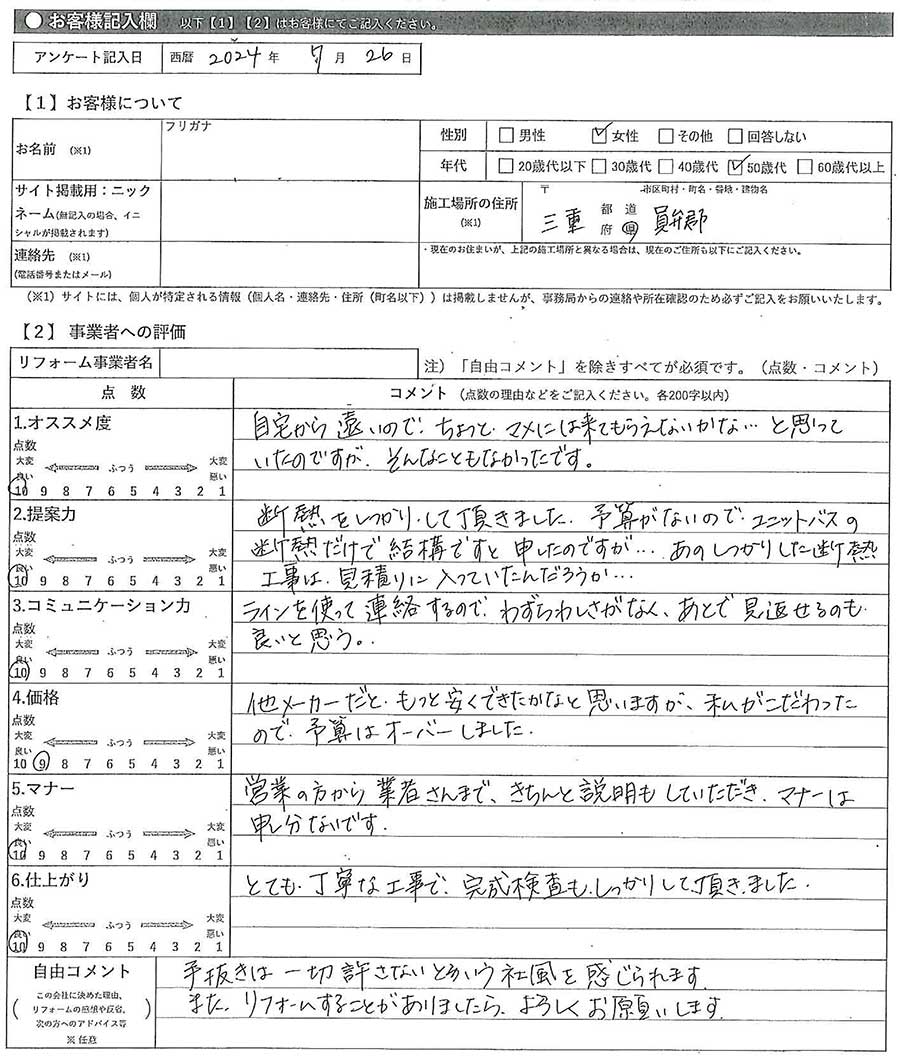 ● お客様記入欄 以下【1】【2】はお客様にてご記入ください。
アンケート記入日 西暦 2024 年 7 月 26 日
【1】お客様について
お名前 (※1) フリガナ
性別 □男性 ☑女性 □その他 □回答しない
年代 □20歳代以下 □30歳代 □40歳代 ☑50歳代 □60歳代以上
サイト掲載用：ニックネーム(無記入の場合、イニシャルが掲載されます)
施工場所の住所 (※1)
〒 市区町村・町名・番地・建物名
三重 都道府県 員弁郡
連絡先 (※1)
(電話番号またはメール)
・現在のお住まいが、上記の施工場所と異なる場合は、現在のご住所も以下にご記入ください。
(※1) サイトには、個人が特定される情報（個人名・連絡先・住所（町名以下））は掲載しませんが、事務局からの連絡や所在確認のため必ずご記入をお願いいたします。
【2】事業者への評価
リフォーム事業者名
注）「自由コメント」を除きすべてが必須です。（点数・コメント）
点 数
コメント（点数の理由などをご記入ください。各200字以内）
1.オススメ度
点数
大変良い ふつう 大変悪い
10 9 8 7 6 5 4 3 2 1
自宅から遠いので、ちょっと、マメには来てもらえないかな…と思って
いたのですが、そんなこともなかったです。
2.提案力
点数
大変良い ふつう 大変悪い
10 9 8 7 6 5 4 3 2 1
断熱をしっかりして頂きました。予算がないので、ユニットバスの
断熱だけで結構ですと申したのですが…あのしっかりした断熱
工事は、見積りに入っていたんだろうか…
3.コミュニケーション力
点数
大変良い ふつう 大変悪い
10 9 8 7 6 5 4 3 2 1
ラインを使って連絡するので、わずらわしさがなく、あとで見返せるのも
良いと思う。
4.価格
点数
大変良い ふつう 大変悪い
10 9 8 7 6 5 4 3 2 1
他メーカーだと、もっと安くできたかなと思いますが、私がこだわった
ので、予算はオーバーしました。
5.マナー
点数
大変良い ふつう 大変悪い
10 9 8 7 6 5 4 3 2 1
営業の方から業者さんまで、きちんと説明もしていただき、マナーは
申し分ないです。
6.仕上がり
点数
大変良い ふつう 大変悪い
10 9 8 7 6 5 4 3 2 1
とても、丁寧な工事で、完成検査もしっかりして頂きました。
自由コメント
（この会社に決めた理由、
リフォームの感想や反省、
次の方へのアドバイス等）
※ 任意
手抜きは一切許さないという社風を感じられます。
また、リフォームすることがありましたら、よろしくお願いします。